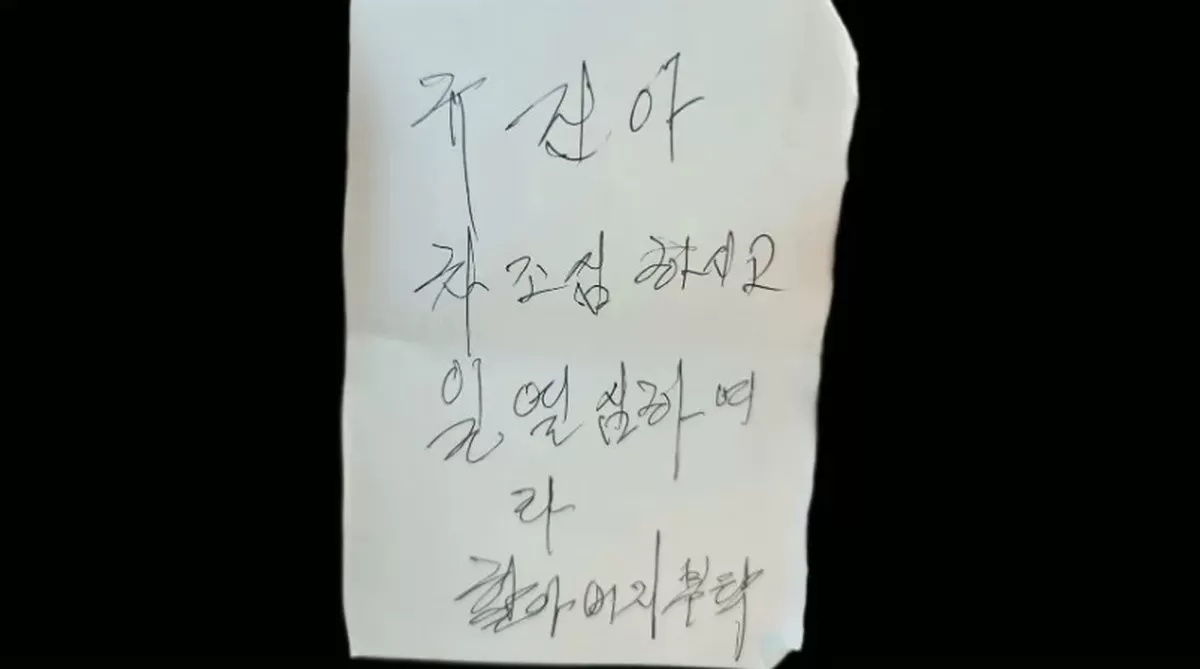 규진아
차조심하시고
일열심하여
라
할아버지부탁